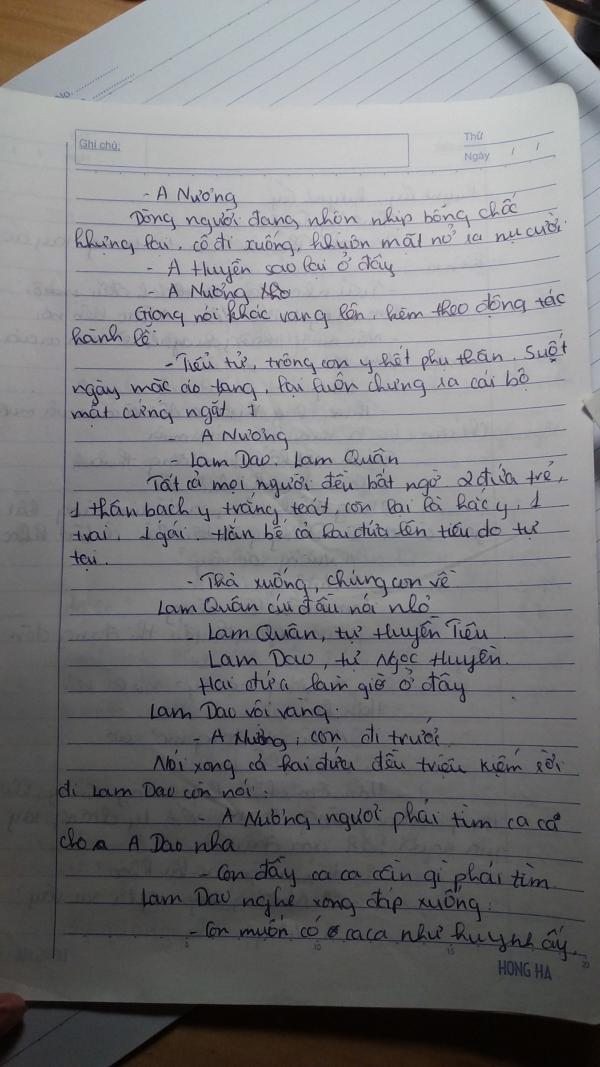 No.
Ghi chú:
Thứ
Ngày / /
- A Nương
Dòng người đang nhộn nhịp bỗng chốc
khựng lại, cô đi xuống, khuôn mặt nở ra nụ cười.
- A Huyền sao lại ở đây
- A Nương
Giọng nói khác vang lên, kèm theo động tác
hành lễ:
- Tiểu tử, trông con y hết phụ thân. Suốt
ngày mặc áo tang, lại luôn chưng ra cái bộ
mặt cứng ngắt
- A Nương
- Lam Dao, Lam Quân
Tất cả mọi người đều bất ngờ 2 đứa trẻ,
1 thân bạch y trắng toát, còn lại là hắc y, 1
trai, 1 gái. Hắn bế cả hai đứa lên tiêu dao tự
tại.
- Thả xuống, chúng con về
Lam Quân cúi đầu nói nhỏ
- Lam Quân, tự Huyền Tiêu
Lam Dao, tự Ngọc Huyền.
Hai đứa làm gì ở đây
Lam Dao vội vàng:
- A Nương, con đi trước
Nói xong cả hai đứa đều triệu kiếm rời
đi Lam Dao còn nói:
- A Nương, người phải tìm ca ca
cho A Dao nha
- Con đầy ca ca cần gì phải tìm
Lam Dao nghe xong đáp xuống:
- Con muốn có ca ca như huynh ấy.
5 10 15 20
HONG HA